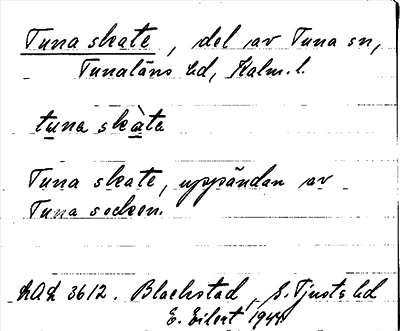 Tuna skate, del av Tuna sn,
Tunaläns hd, Kalm. l.
tuna skàta
Tuna skate, uppändan av
Tuna socken.
LAL 3612. Blackstad, S. Tjusts hd
E. Eilert 1944